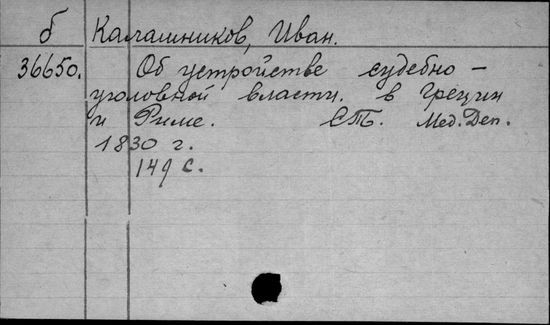 б Калашников, Иван.
36650. Об устройстве судебно -
уголовной власти. в Греции
и Риме. СТб. Мед. Деп.
1830 г.
149 с.